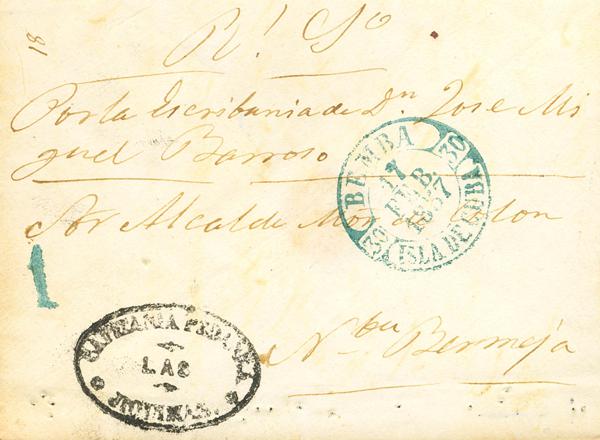 R.l So
18
Por la Escribania de Dn. Jose Mi
guel Barroso
Sor Alcalde Mor de Colon
Nba Bermeja
BEMBA
17
FEB
1857
ISLA DE CUBA
1
CAPITANIA PEDANEA
LAS